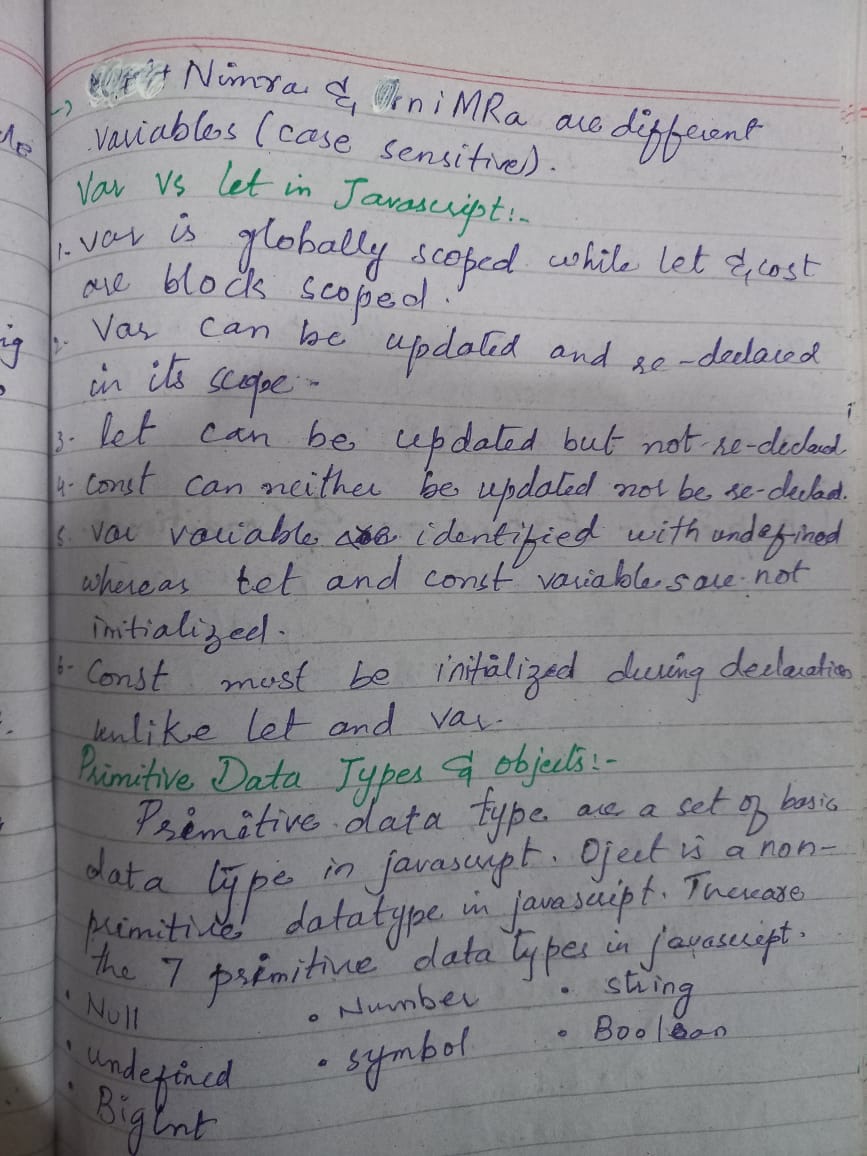 → Nimra & niMRa are different
variables (case sensitive).
Var vs let in Javascript:-
1. var is globally scoped while let & cost
are block scoped.
2. Var can be updated and re-declared
in its scope -
3- let can be updated but not re-declaed
4- Const can neither be updated not be re-declad.
5. var variable are identified with undefined
whereas let and const variables are not
initialized.
6- Const must be initalized during declaration
unlike let and var.
Primitive Data Types & objects:-
Primitive data type are a set of basic
data type in javascript. Oject is a non-
primitive datatype in javascript. Thereare
the 7 primitive data types in javascript.
• Null • Number • string
• undefined • symbol • Boolean
• BigInt